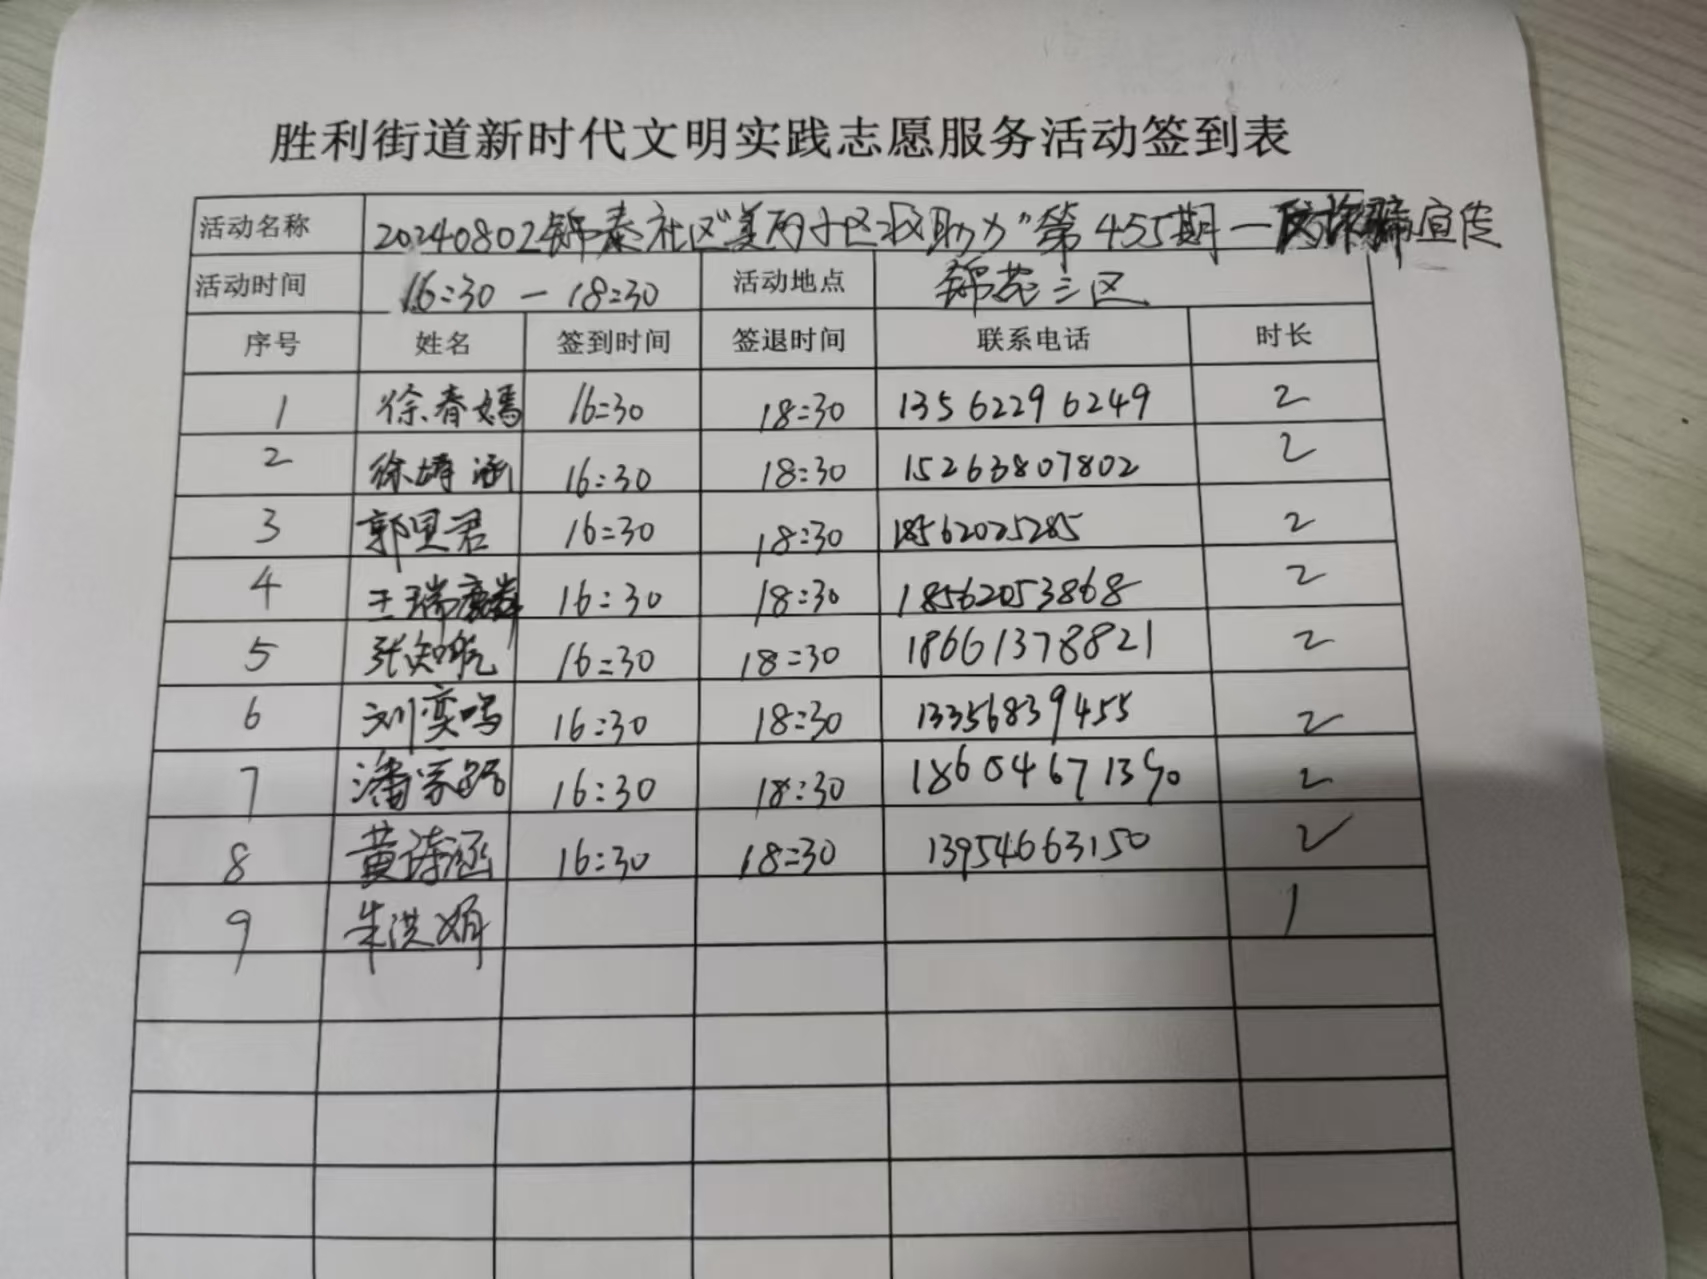 胜利街道新时代文明实践志愿服务活动签到表
活动名称 20240802锦泰社区"美丽小区我助力"第455期一防诈骗宣传
活动时间 16:30 一 18:30 活动地点 锦苑三区
序号 姓名 签到时间 签退时间 联系电话 时长
1 徐春嫣 16:30 18:30 13562296249 2
2 徐 涵 16:30 18:30 15263807802 2
3 郭 君 16:30 18:30 18562025285 2
4 王瑞麟 16:30 18:30 18562053868 2
5 张知 16:30 18:30 18661378821 2
6 刘奕鸣 16:30 18:30 13356839455 2
7 潘 16:30 18:30 18605467390 2
8 黄诗涵 16:30 18:30 13954663150 2
9 朱洪娟 1